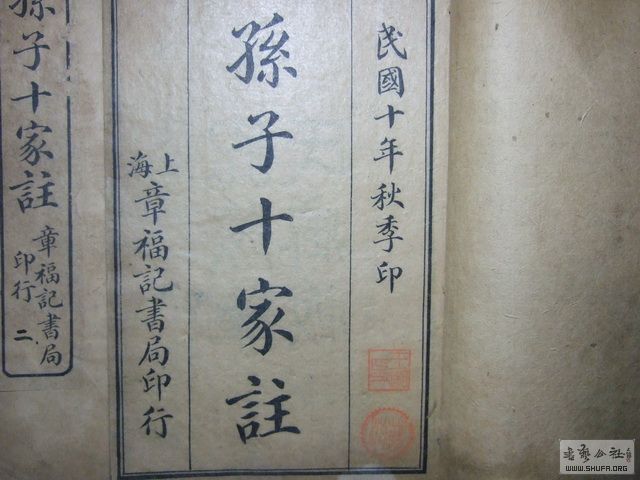 民國十年秋季印
孫子十家註
上海章福記書局印行
孫子十家註
章福記書局
印行 二
WWW.SHUFA.ORG